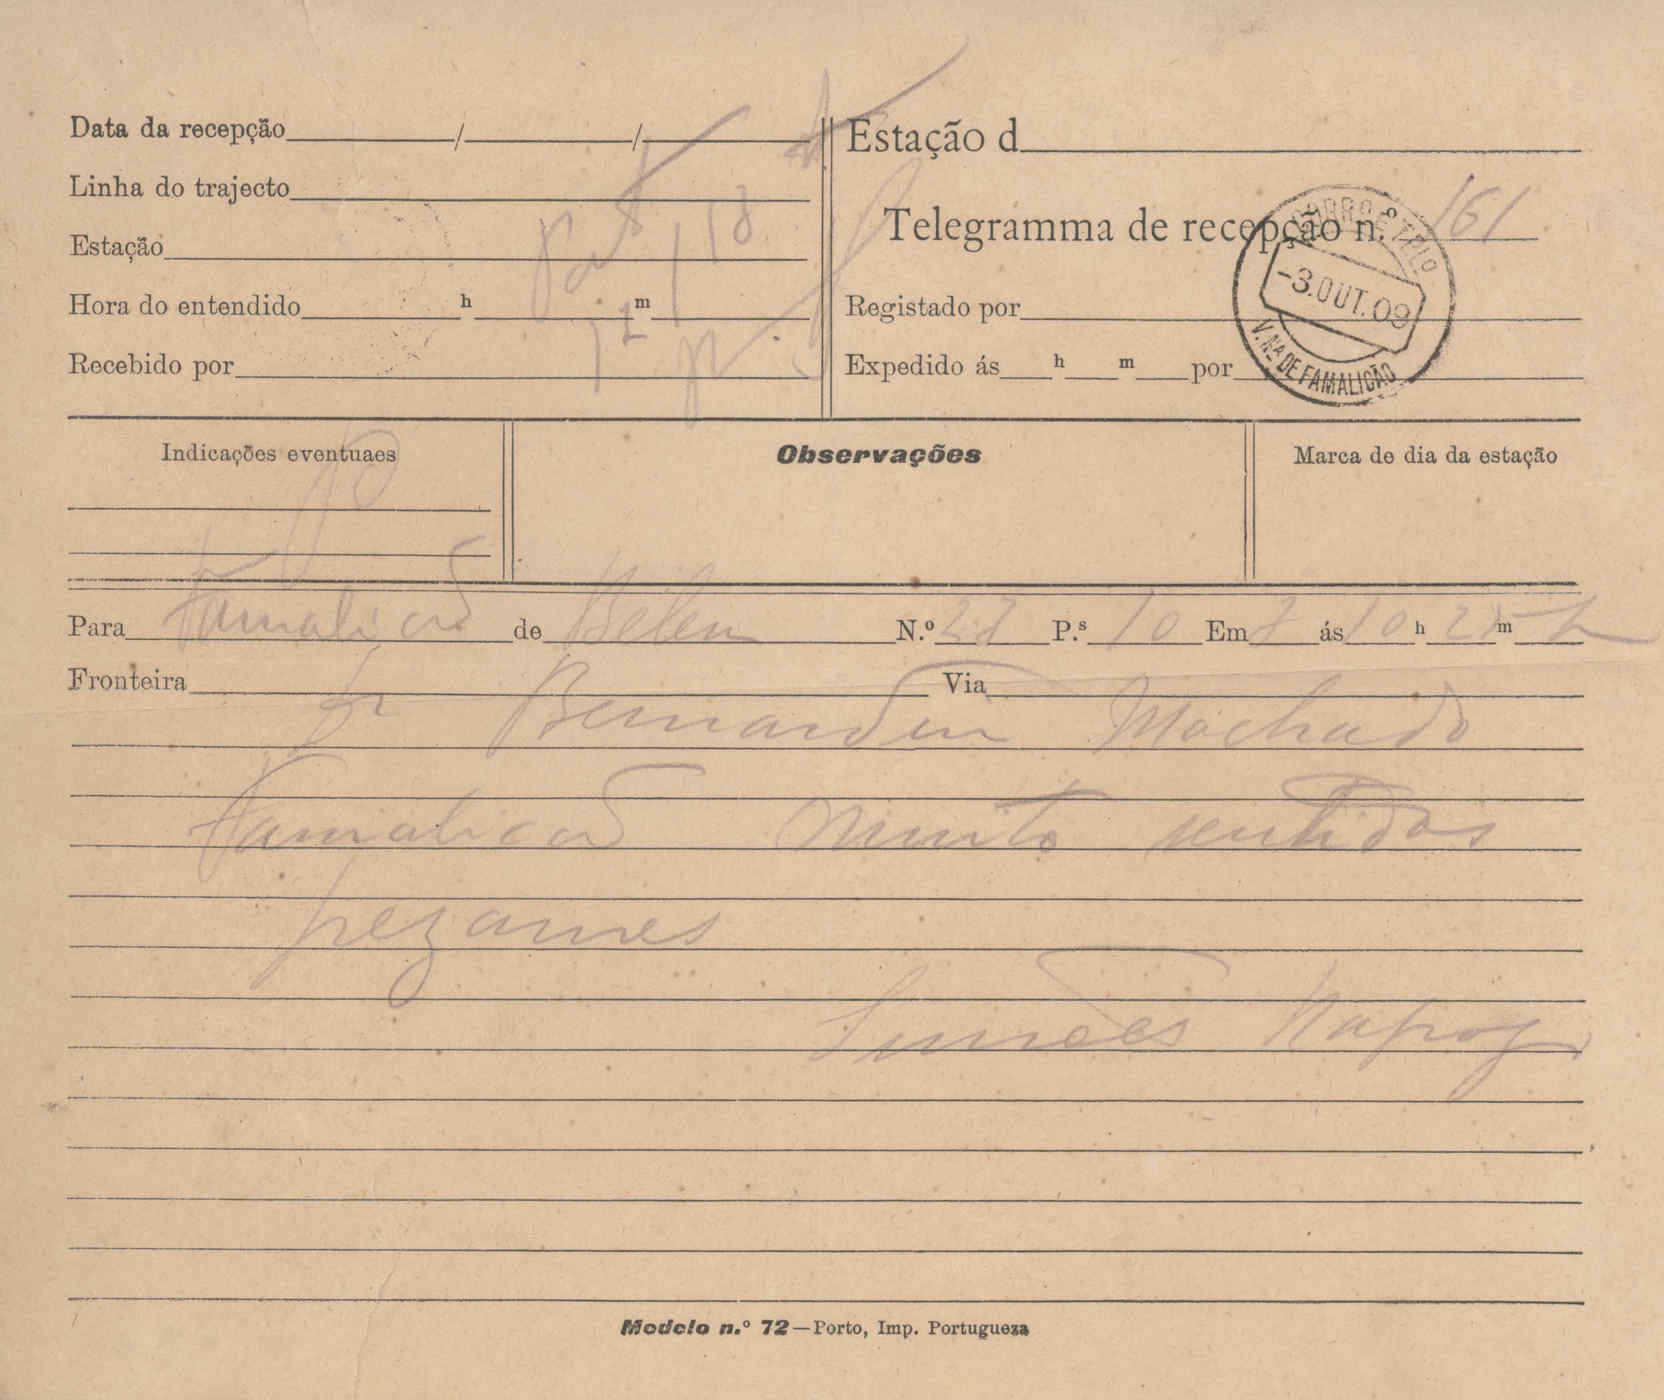 Data da recepção / /
Linha do trajecto
Estação
Hora do entendido h m
Recebido por
Estação d
Telegramma de recepção n.º 161
CORRº E TELº
-3.OUT.09
V. Nª DE FAMALICÃO
Registado por
Expedido ás h m por
Indicações eventuaes
Observações
Marca de dia da estação
Para Famalicão de Belem N.º P.s 10 Em ás 10 h m
Fronteira Via
Bernardin Machado
Famalicão Muito sentidos
pezames
Simões Rapoz
Modelo n.º 72—Porto, Imp. Portugueza